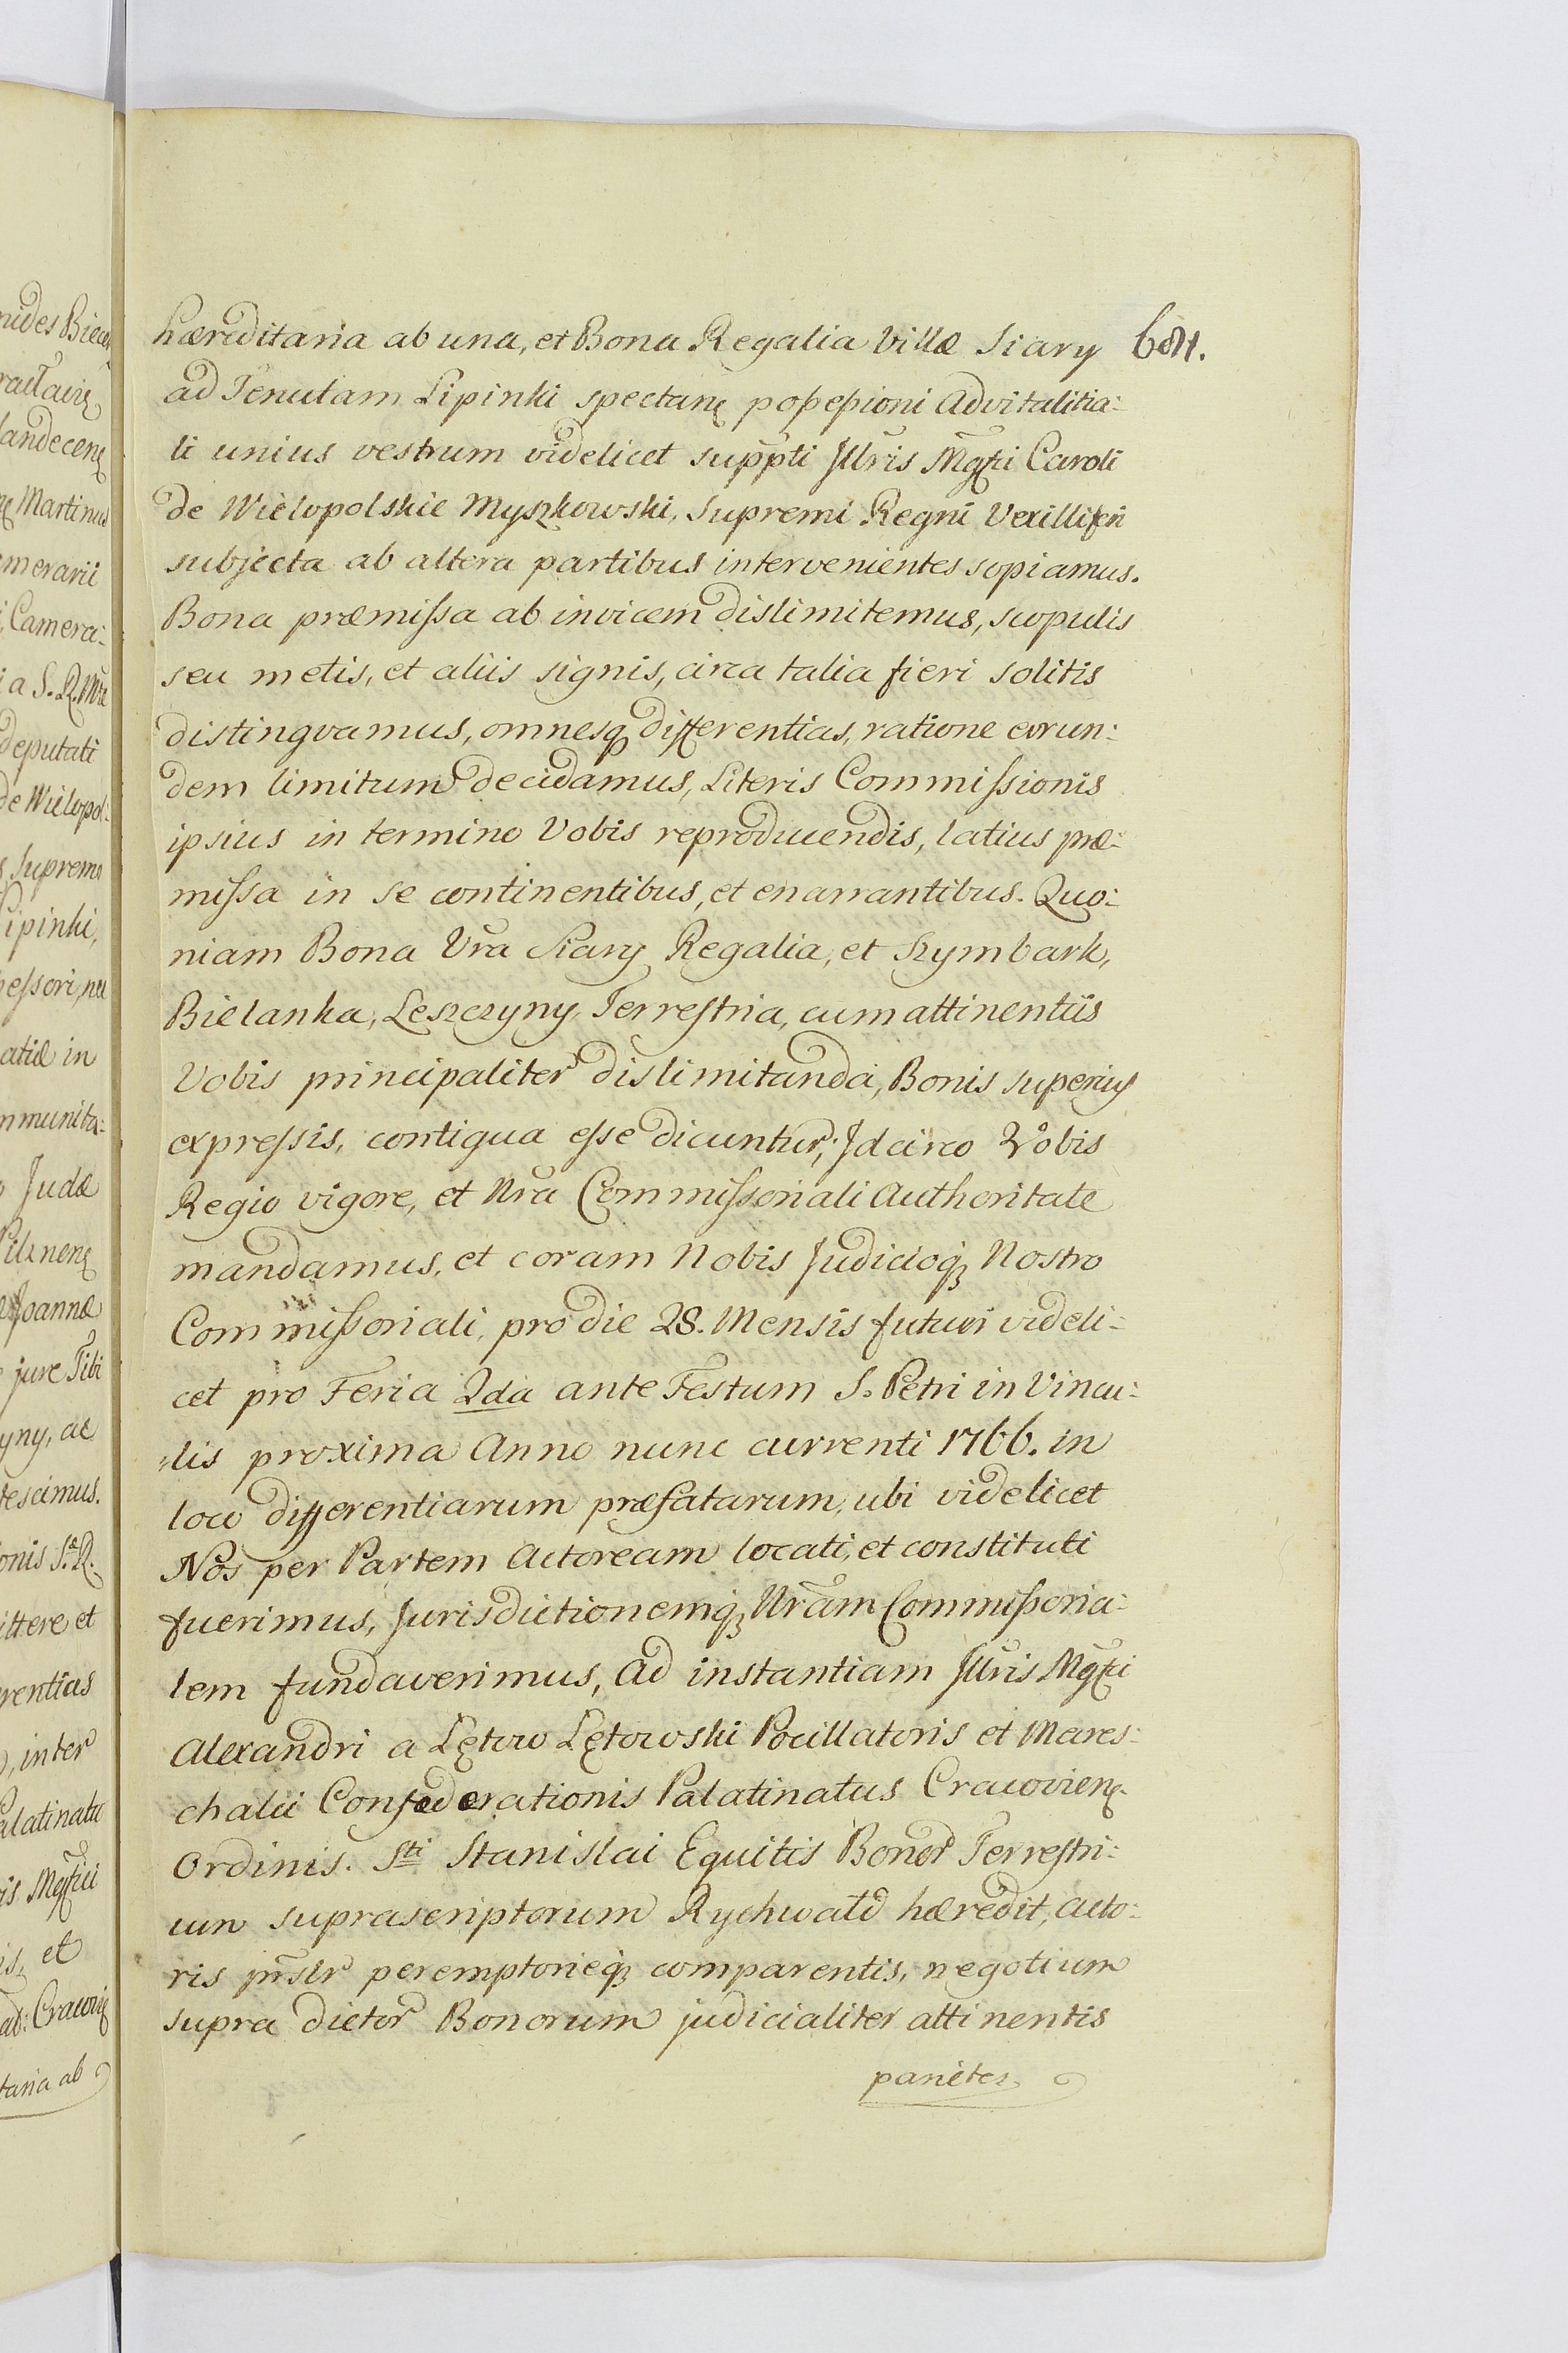 hæreditaria ab una, et Bona Regalia Villæ Siary
ad Tenutam Lipinki spectanę possessioni Advitalitia:
li unius vestrum videlicet suppti Jllris Mgfci Caroli
de Wielopolskie Myszkowski, Supremi Regni Vexilliferi
subjecta ab altera partibus intervenientes sopiamus.
Bona præmissa ab invicem dislimitemus, scopulis
seu metis, et aliis signis, circa talia fieri solitis
distingvamus, omnesq differentias, ratione eorun:
dem limitum decidamus, Literis Commissionis
ipsius in termino Vobis reproducendis, latius præ:
missa in se continentibus, et enarrantibus. Quo:
niam Bona Vra Siary Regalia, et Szymbark,
Bielanka, Leszczyny Terrestria, cum attinentiis
Vobis principaliter dislimitanda, Bonis superius
expressis, contigua esse dicuntur; Jdcirco Vobis
Regio vigore, et Nra Commissoriali Authoritate
mandamus, et coram Nobis Judicioq Nostro
Commissoriali, pro die 28. Mensis futuri videli:
cet pro Feria 2da ante Festum S. Petri in Vincu:
lis proxima Anno nunc currenti 1766. in
loco differentiarum præfatarum, ubi videlicet
Nos per Partem Actoream locati, et constituti
fuerimus, Jurisdictionemq Nram Commissoria:
lem fundaverimus, ad instantiam Jllris Mgfci
Alexandri a Lętow Lętowski Pocillatoris et Mares:
chalii Confæderationis Palatinatus Cracovienę
Ordinis. Sti Stanislai Equitis Bonor Terrestri:
um suprascriptorum Rychwald hæredit, acto:
ris pnslr peremptorieq comparentis, negotium
supra dictor Bonorum judicialiter attinentis
pariter
mides Biecen
Martinus
merarii
Camera:
a S. R. Mte
deputati
de Wielopol:
Supremo
Lipinki,
atiæ in
mmunita:
Judæ
Pilznenę
Joannæ
jure Tibi
yny, ac
onis S. R.
ittere et
rentias
inter
Palatinatu
is Mgfici
is, et
taria ab